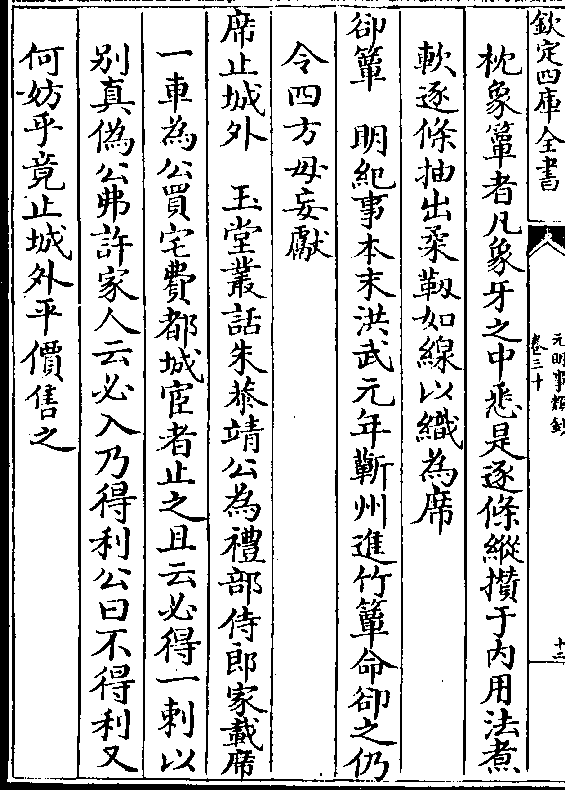 欽定四庫全書
元明事類鈔
卷三十
十二
枕象簟者凡象牙之中悉是逐條縱攢于内用法煮
軟逐條抽出柔韌如線以織為席
卻簟　明紀事本末洪武元年蘄州進竹簟命卻之仍
令四方毋妄獻
席止城外　玉堂叢話朱恭靖公為禮部侍郎家載席
一車為公買宅費都城宦者止之且云必得一刺以
别真偽公弗許家人云必入乃得利公曰不得利又
何妨乎竟止城外平價售之